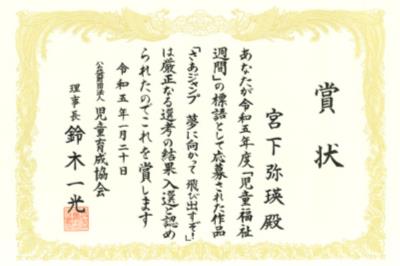 賞状
宮下弥瑛殿
あなたが令和五年度「児童福祉
週間」の標語として応募された作品
「さあジャンプ 夢に向かって 飛び出すぞ!」
は厳正なる選考の結果入選と認め
られたのでこれを賞します
令和五年一月二十日
公益財団法人 児童育成協会
理事長 鈴木一光